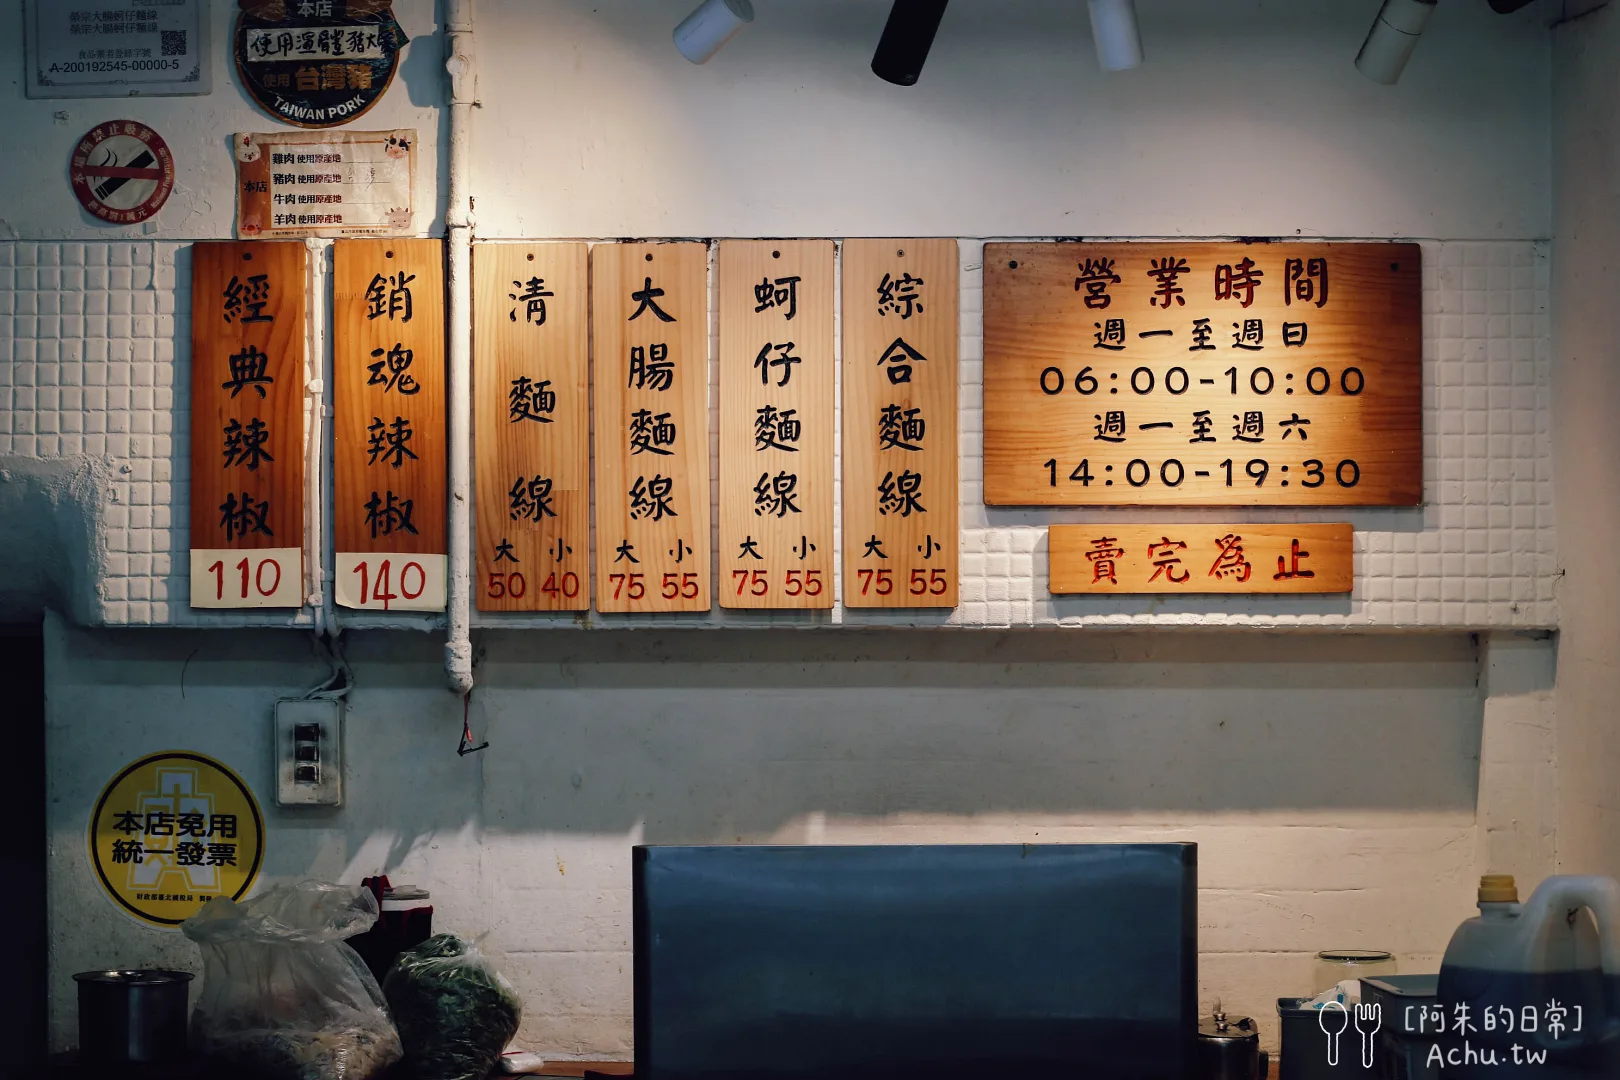 榮宗大腸蚵仔麵線
榮宗大腸蚵仔麵線
食品業者登錄字號
A-200192545-00000-5
本店
使用溫體豬大腸
使用 台灣豬
TAIWAN PORK
本場所禁止吸菸
本店
雞肉 使用原產地
豬肉 使用原產地
牛肉 使用原產地
羊肉 使用原產地
經典辣椒
110
銷魂辣椒
140
清麵線
大 小
50 40
大腸麵線
大 小
75 55
蚵仔麵線
大 小
75 55
綜合麵線
大 小
75 55
營業時間
週一至週日
06:00-10:00
週一至週六
14:00-19:30
賣完為止
本店免用
統一發票
財政部臺北國稅局
[阿朱的日常]
Achu.tw